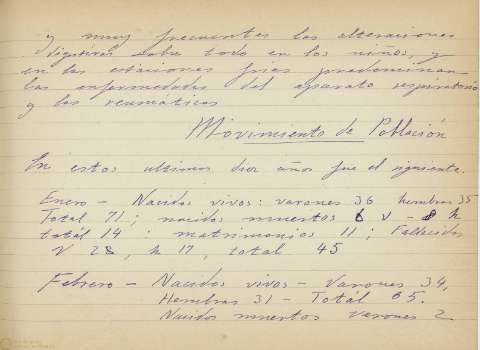 y muy frecuentes las alteraciones
digestivas sobre todo en los niños, y
en las estaciones frias predominan
las enfermedades del aparato respiratorio
y los reumaticos
Movimiento de Población
En estos ultimos diez años fue el siguiente.
Enero – Nacidos vivos: varones 36 hembras 35
Total 71; nacidos muertos 6 v – 8 h
totál 14 : matrimonios 11; Fallecidos
V 28, h 17, total 45
Febrero – Nacidos vivos – Varones 34,
Hembras 31 – Totál 65.
Nacidos muertos varones 2